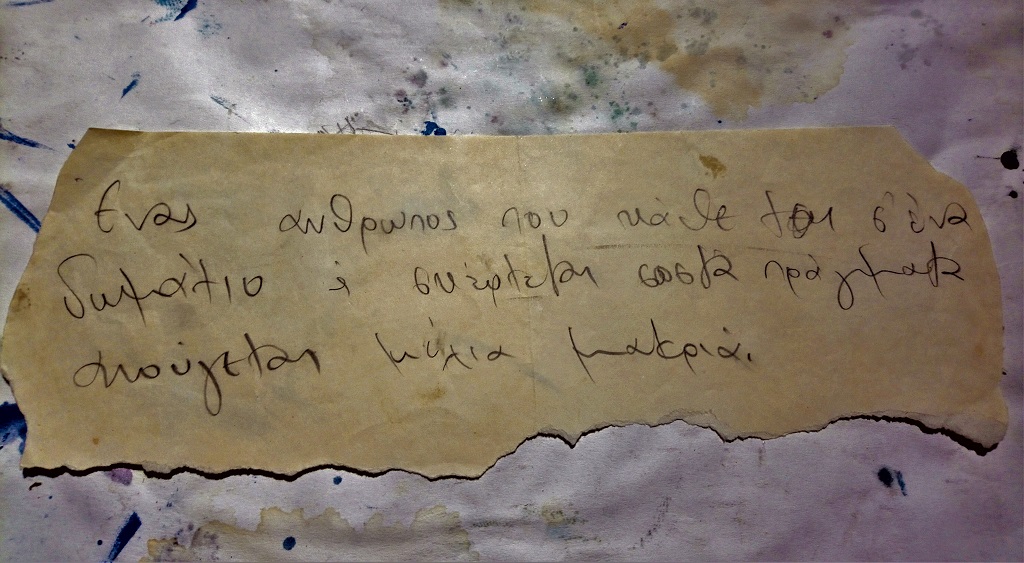 Ένας ανθρωπος που κάθεται σ' ένα
δωμάτιο έ σκέφτεται σωστά πράγματα
ακούγεται μύλια μακριά.